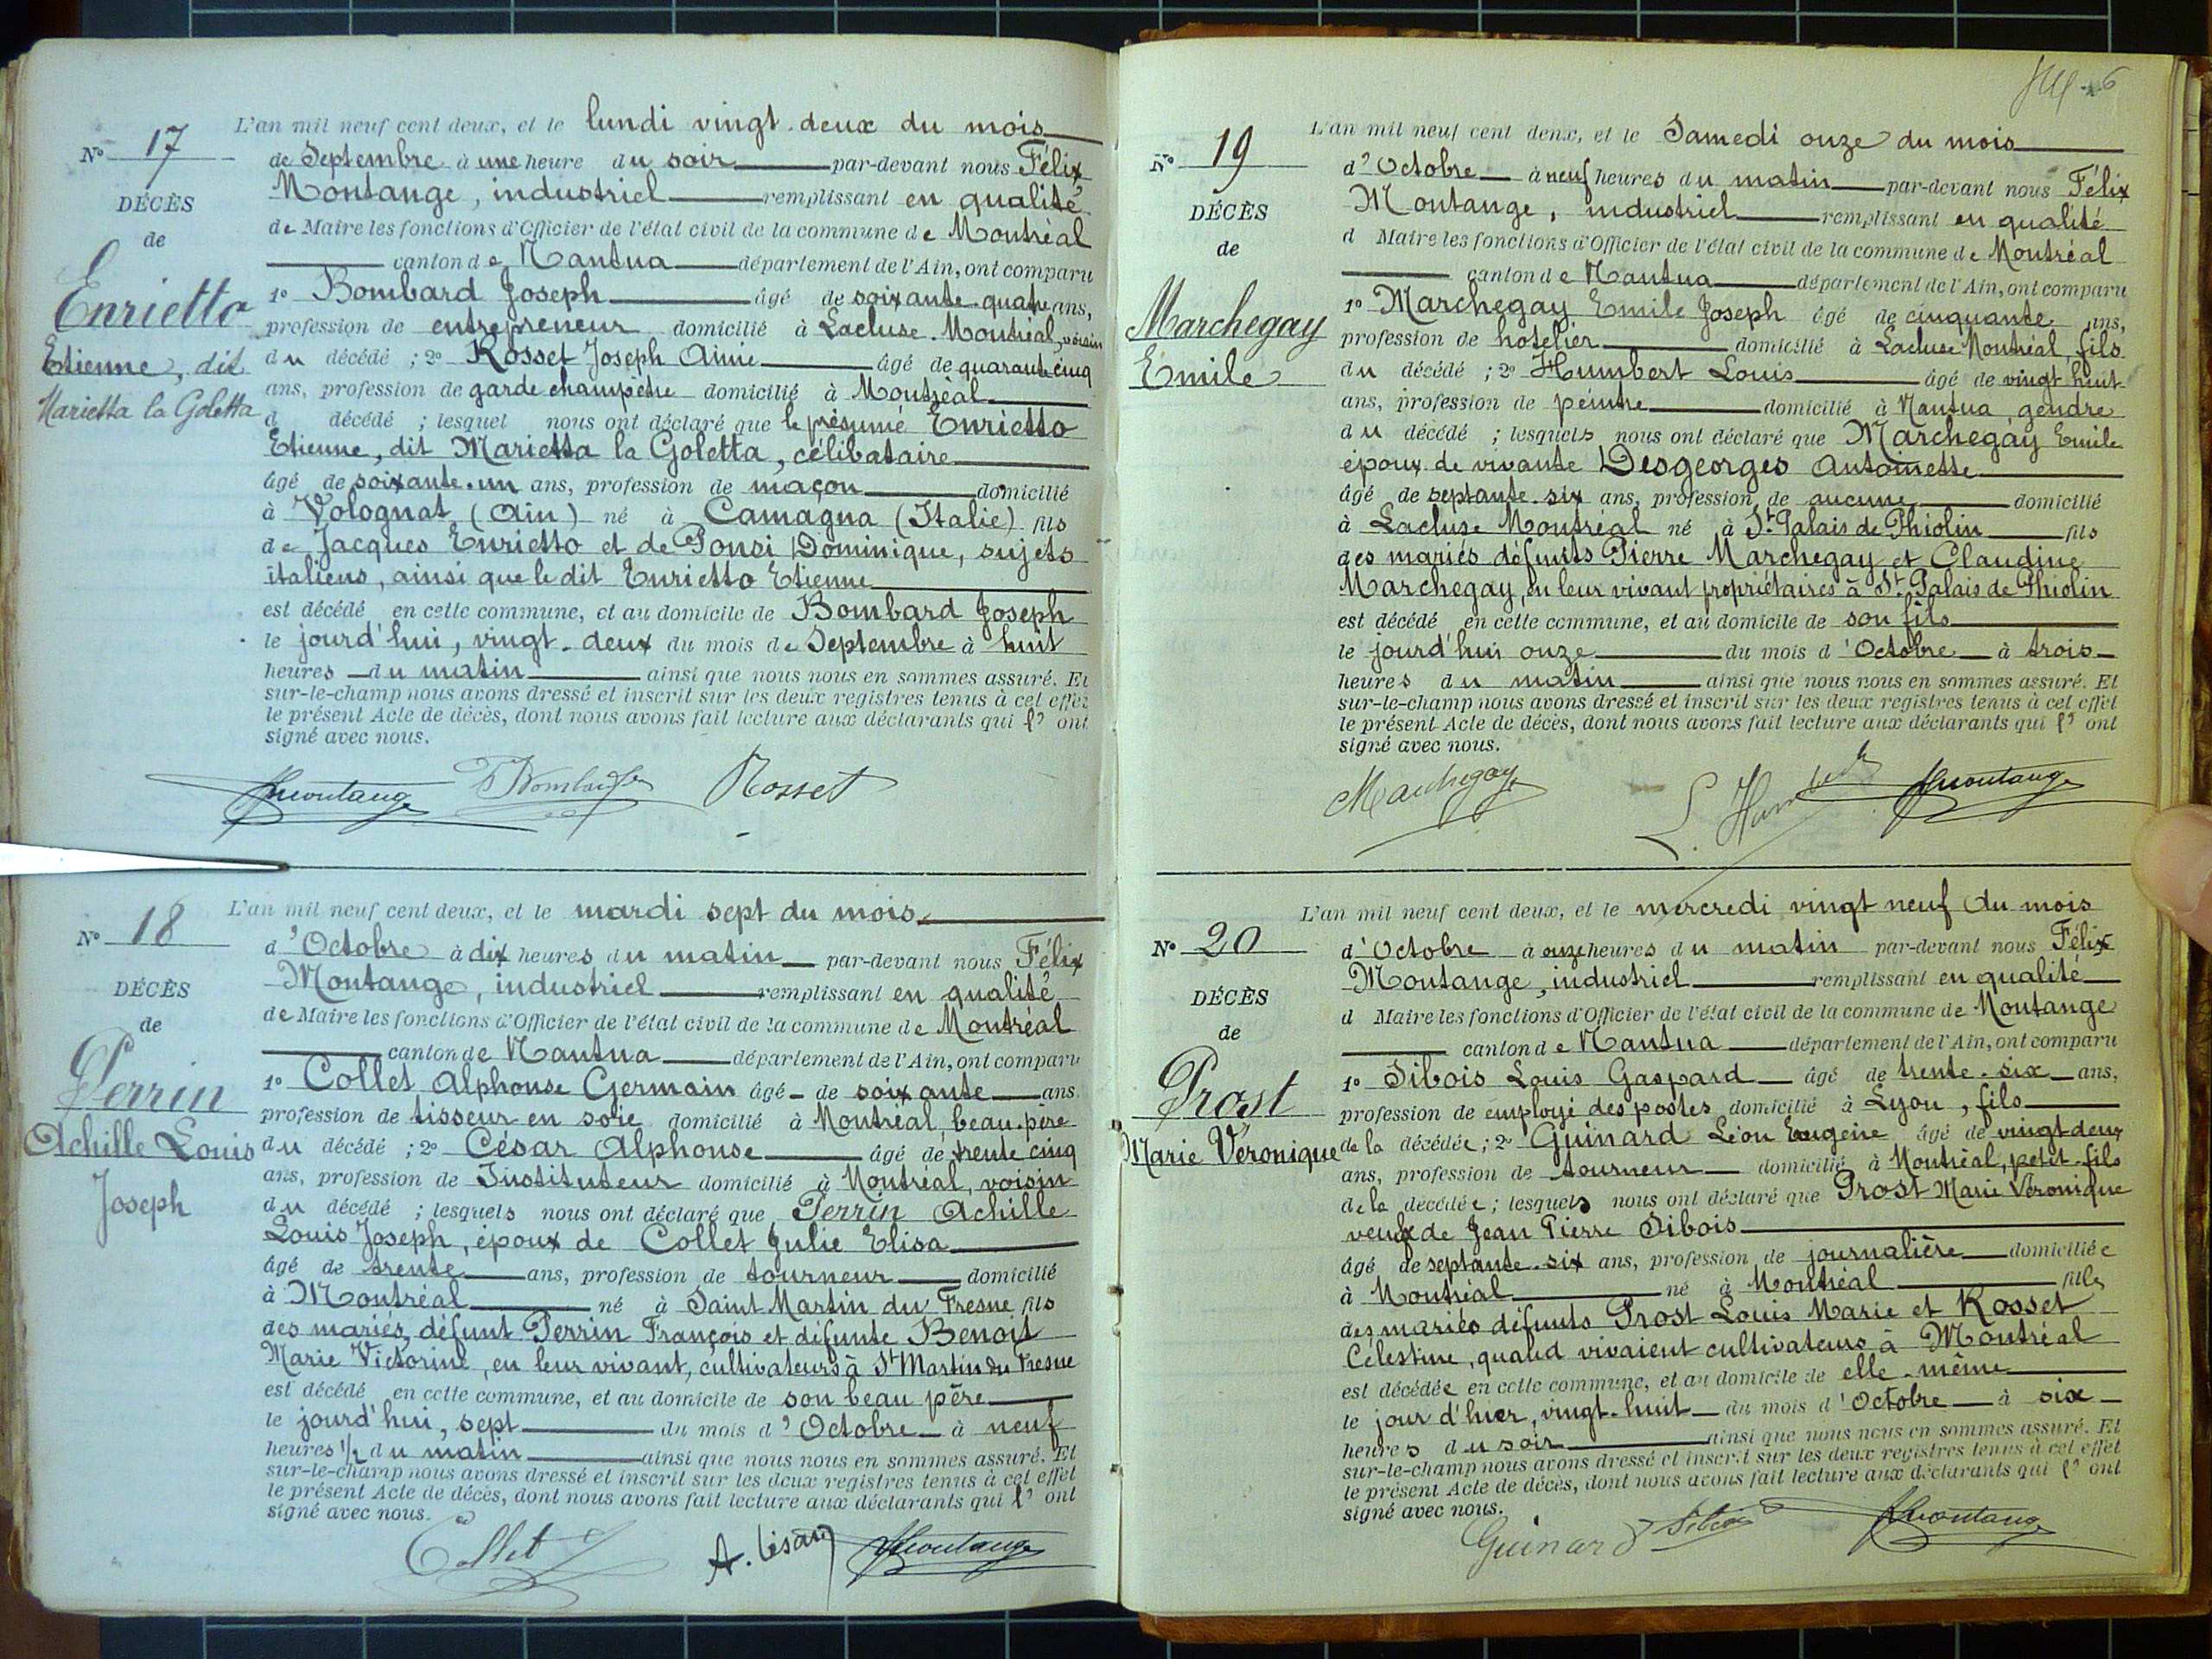 N° 17
DÉCÈS
de
Enrietto
Etienne, dit
Marietta la Goletta
L'an mil neuf cent deux, et le lundi vingt-deux du mois
de Septembre à une heure du soir par-devant nous Félix
Montange, industriel remplissant en qualité
de Maire les fonctions d'Officier de l'état civil de la commune de Montréal
canton de Nantua département de l'Ain, ont comparu
1° Bombard Joseph âgé de soixante-quatre ans,
profession de entrepreneur domicilié à Lacluse-Montréal, voisin
du décédé ; 2° Rosset Joseph Aimé âgé de quarante cinq
ans, profession de garde champêtre domicilié à Montréal
d décédé ; lesquel nous ont déclaré que le présumé Enrietto
Etienne, dit Marietta la Goletta, célibataire
âgé de soixante-un ans, profession de maçon domicilié
à Volognat (Ain) né à Camagna (Italie) fils
de Jacques Enrietto et de Ponsi Dominique, sujets
italiens, ainsi que le dit Enrietto Etienne
est décédé en cette commune, et au domicile de Bombard Joseph
le jourd'hui, vingt-deux du mois de Septembre à huit
heures du matin ainsi que nous nous en sommes assuré. Et
sur-le-champ nous avons dressé et inscrit sur les deux registres tenus à cet effet
le présent Acte de décès, dont nous avons fait lecture aux déclarants qui l' ont
signé avec nous.
Rosset
N° 18
DÉCÈS
de
Perrin
Achille Louis
Joseph
L'an mil neuf cent deux, et le mardi sept du mois
d'Octobre à dix heures du matin par-devant nous Félix
Montange, industriel remplissant en qualité
de Maire les fonctions d'Officier de l'état civil de la commune de Montréal
canton de Nantua département de l'Ain, ont comparu
1° Collet Alphonse Germain âgé de soixante ans.
profession de tisseur en soie domicilié à Montréal, beau-père
du décédé ; 2° César Alphonse âgé de trente cinq
ans, profession de Instituteur domicilié à Montréal, voisin
du décédé ; lesquels nous ont déclaré que Perrin Achille
Louis Joseph, époux de Collet Julie Elisa
âgé de trente ans, profession de tourneur domicilié
à Montréal né à Saint Martin du Fresne fils
des mariés, défunt Perrin François et défunte Benoit
Marie Victorine, en leur vivant, cultivateurs à St Martin du Fresne
est décédé en cette commune, et au domicile de son beau père
le jourd'hui, sept du mois d'Octobre à neuf
heures 1/2 du matin ainsi que nous nous en sommes assuré. Et
sur-le-champ nous avons dressé et inscrit sur les deux registres tenus à cet effet
le présent Acte de décès, dont nous avons fait lecture aux déclarants qui l' ont
signé avec nous.
Collet A. César Montange
N° 19
DÉCÈS
de
Marchegay
Emile
L'an mil neuf cent deux, et le Samedi onze du mois
d'Octobre à neuf heures du matin par-devant nous Félix
Montange, industriel remplissant en qualité
d Maire les fonctions d'Officier de l'état civil de la commune de Montréal
canton de Nantua département de l'Ain, ont comparu
1° Marchegay Emile Joseph âgé de cinquante ans,
profession de hotelier domicilié à Lacluse Montréal, fils
du décédé ; 2° Humbert Louis âgé de vingt huit
ans, profession de peintre domicilié à Nantua, gendre
du décédé ; lesquels nous ont déclaré que Marchegay Emile
époux de vivante Desgeorges Antoinette
âgé de septante-six ans, profession de aucune domicilié
à Lacluse Montréal né à St Palais de Phiolin fils
des mariés défunts Pierre Marchegay et Claudine
Marchegay, en leur vivant propriétaires à St Palais de Phiolin
est décédé en cette commune, et au domicile de son fils
le jourd'hui onze du mois d'Octobre à trois
heures du matin ainsi que nous nous en sommes assuré. Et
sur-le-champ nous avons dressé et inscrit sur les deux registres tenus à cet effet
le présent Acte de décès, dont nous avons fait lecture aux déclarants qui l' ont
signé avec nous.
Marchegay L. Humbert Montange
N° 20
DÉCÈS
de
Prost
Marie Véronique
L'an mil neuf cent deux, et le mercredi vingt neuf du mois
d'Octobre à onze heures du matin par-devant nous Félix
Montange, industriel remplissant en qualité
d Maire les fonctions d'Officier de l'état civil de la commune de Montange
canton de Nantua département de l'Ain, ont comparu
1° Sibois Louis Gaspard âgé de trente-six ans,
profession de employé des postes domicilié à Lyon, fils
de la décédée ; 2° Guinard Léon Eugène âgé de vingt deux
ans, profession de tourneur domicilié à Montréal, petit-fils
de la décédée ; lesquels nous ont déclaré que Prost Marie Véronique
veuve de Jean Pierre Sibois
âgé de septante-six ans, profession de journalière domiciliée
à Montréal né à Montréal fille
des mariés défunts Prost Louis Marie et Rosset
Célestine, quand vivaient cultivateurs à Montréal
est décédée en cette commune, et au domicile de elle-même
le jour d'hier, vingt-huit du mois d'Octobre à six
heures du soir ainsi que nous nous en sommes assuré. Et
sur-le-champ nous avons dressé et inscrit sur les deux registres tenus à cet effet
le présent Acte de décès, dont nous avons fait lecture aux déclarants qui l' ont
signé avec nous.
Guinard Sibois Montange